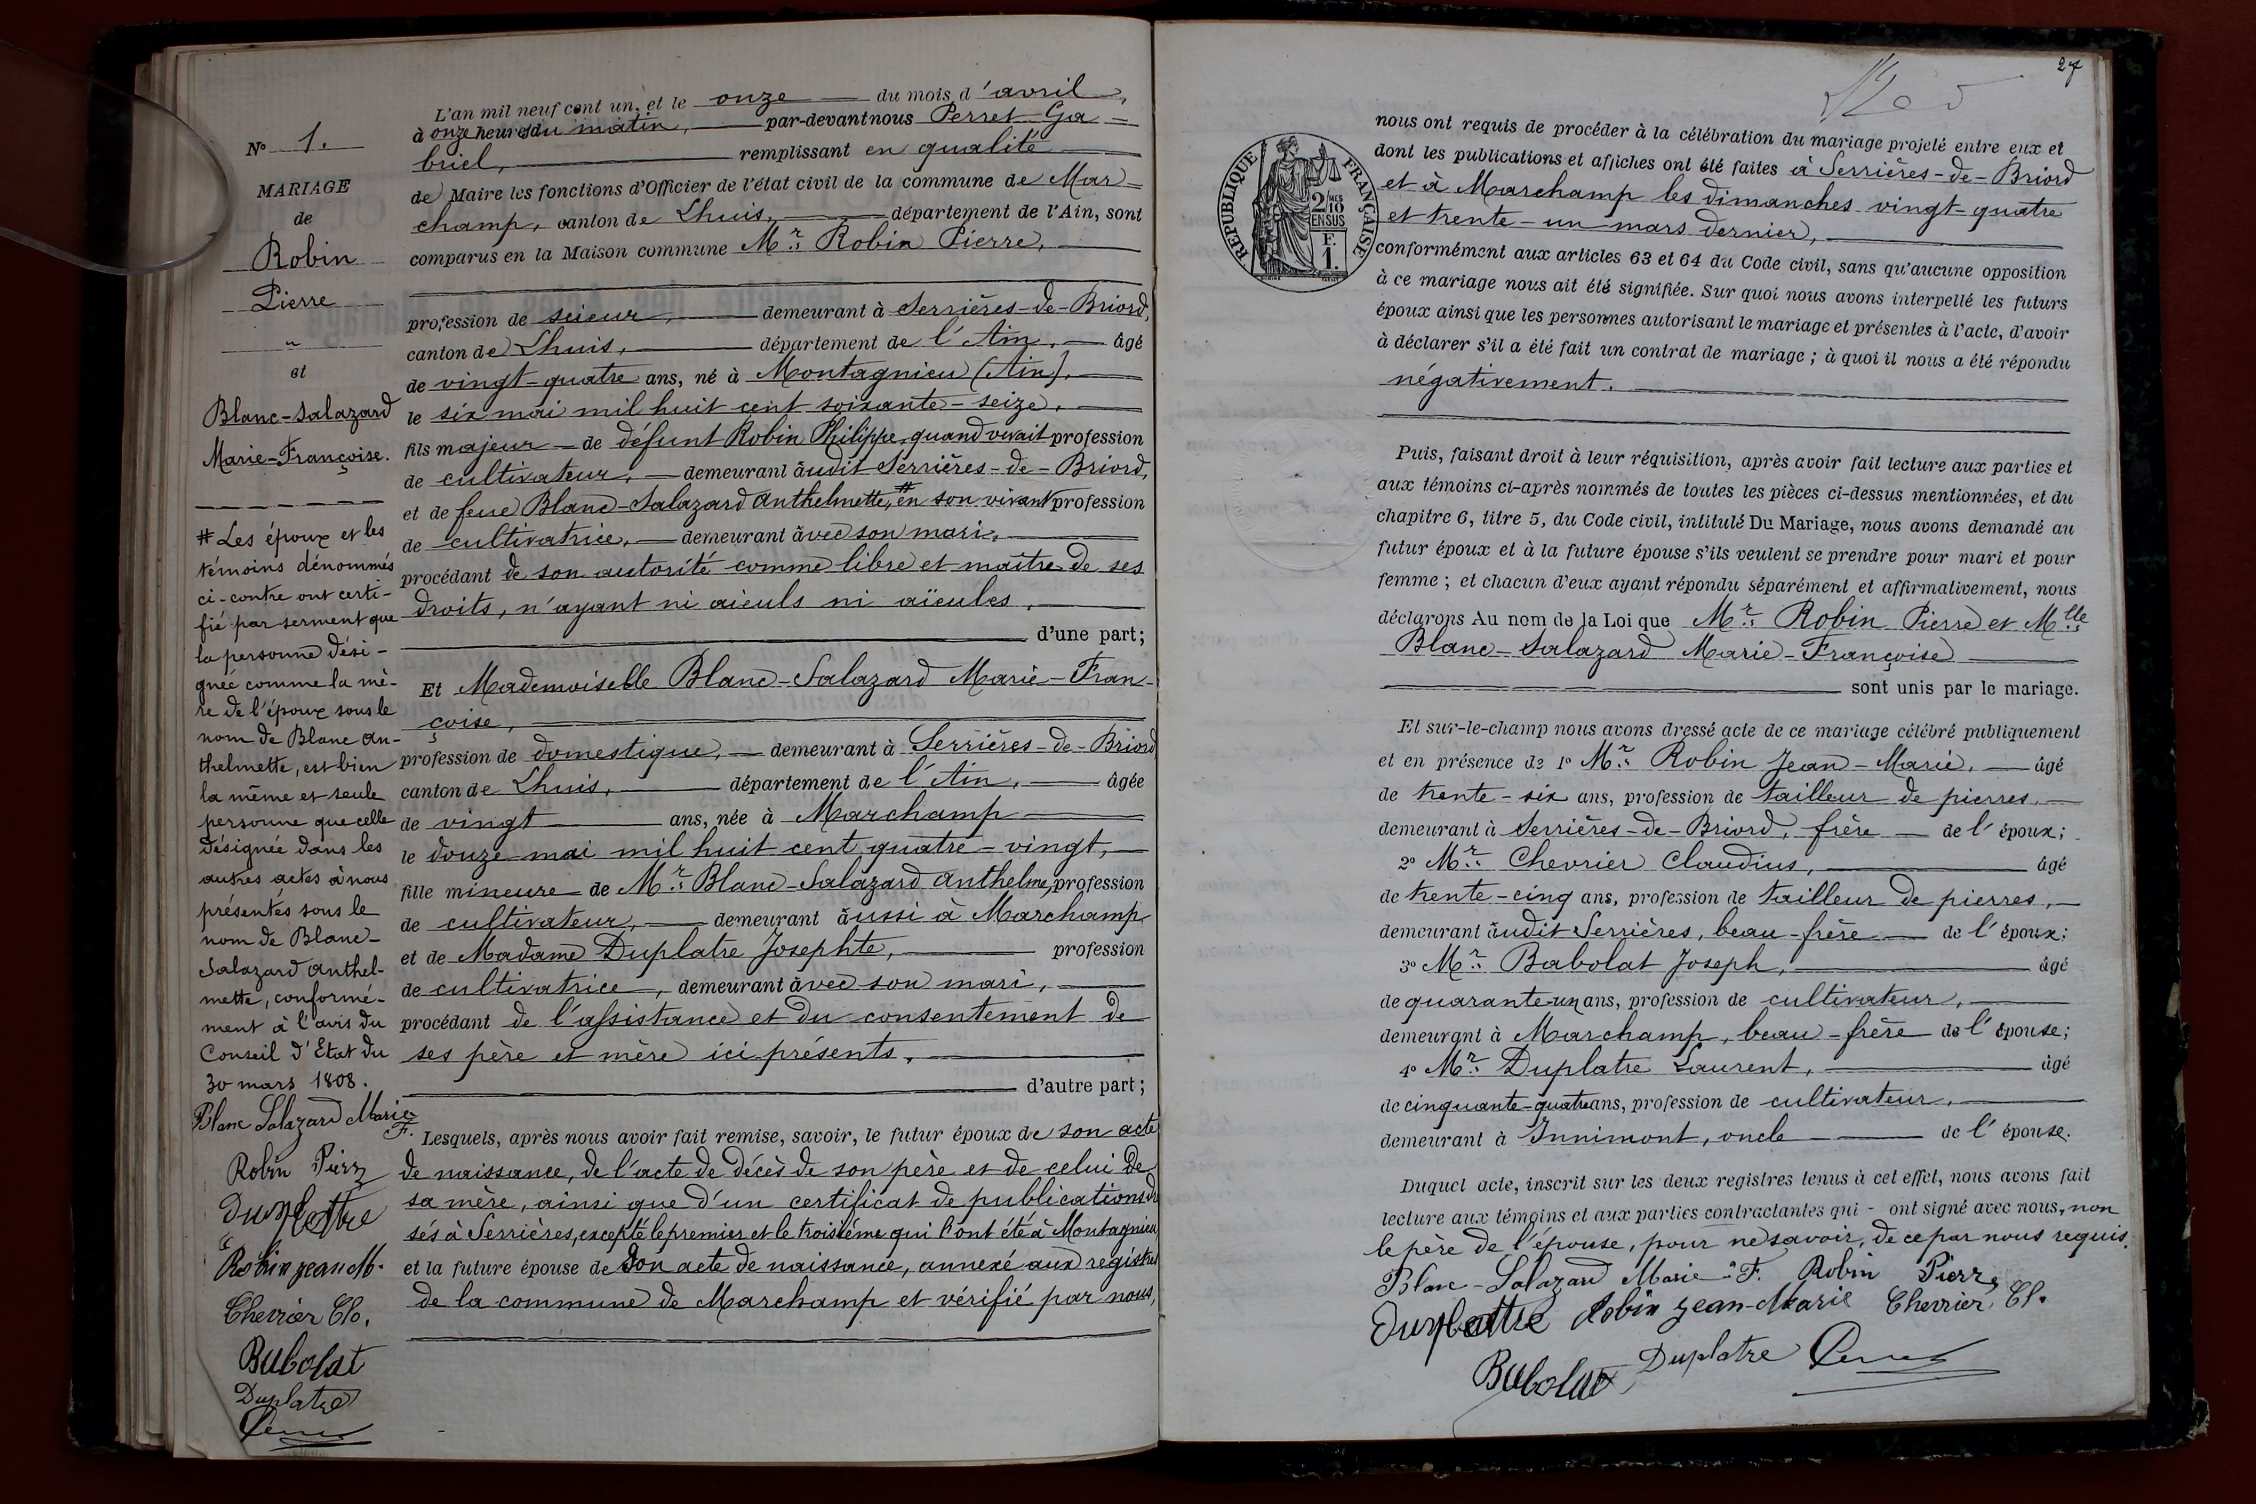 N° 1.
MARIAGE
de
Robin
Pierre
et
Blanc-Salazard
Marie-Françoise.
# Les époux et les
témoins dénommés
ci-contre ont certi-
fié par serment que
la personne dési-
gnée comme la mè-
re de l'époux sous le
nom de Blanc An-
thelmette, est bien
la même et seule
personne que celle
désignée dans les
autres actes à nous
présentés sous le
nom de Blanc-
Salazard Anthel-
mette, conformé-
ment à l'avis du
Conseil d'État du
30 mars 1808.
Blanc Salazard Marie F.
Robin Pierre
Duplattre
Robin jean M.
Chevrier Cl.
Bubolat
Duplatre
L'an mil neuf cent un, et le onze du mois d'avril,
à onze heures du matin, par-devant nous Perret Ga-
briel, remplissant en qualité
de Maire les fonctions d'Officier de l'état civil de la commune de Mar-
champ, canton de Lhuis, département de l'Ain, sont
comparus en la Maison commune Mr. Robin Pierre,
profession de scieur, demeurant à Serrières-de-Briord,
canton de Lhuis, département de l'Ain, âgé
de vingt-quatre ans, né à Montagnieu (Ain),
le six mai mil huit cent soixante-seize,
fils majeur de défunt Robin Philippe, quand vivait profession
de cultivateur, demeurant audit Serrières-de-Briord,
et de feue Blanc-Salazard Anthelmette, # en son vivant profession
de cultivatrice, demeurant avec son mari,
procédant de son autorité comme libre et maître de ses
droits, n'ayant ni aïeuls ni aïeules,
d'une part;
Et Mademoiselle Blanc-Salazard Marie-Fran-
çoise,
profession de domestique, demeurant à Serrières-de-Briord
canton de Lhuis, département de l'Ain, âgée
de vingt ans, née à Marchamp
le douze mai mil huit cent quatre-vingt,
fille mineure de Mr. Blanc-Salazard Anthelme, profession
de cultivateur, demeurant aussi à Marchamp
et de Madame Duplatre Josephte, profession
de cultivatrice, demeurant avec son mari,
procédant de l'assistance et du consentement de
ses père et mère ici présents,
d'autre part;
Lesquels, après nous avoir fait remise, savoir, le futur époux de son acte
de naissance, de l'acte de décès de son père et de celui de
sa mère, ainsi que d'un certificat de publications dres
sés à Serrières, excepté le premier et le troisième qui l'ont été à Montagnieu
et la future épouse de son acte de naissance, annexé aux registres
de la commune de Marchamp et vérifié par nous,
27
RÉPUBLIQUE FRANÇAISE
2 MES
10
EN SUS
F.
1.
nous ont requis de procéder à la célébration du mariage projeté entre eux et
dont les publications et affiches ont été faites à Serrières-de-Briord
et à Marchamp les dimanches vingt-quatre
et trente-un mars dernier,
conformément aux articles 63 et 64 du Code civil, sans qu'aucune opposition
à ce mariage nous ait été signifiée. Sur quoi nous avons interpellé les futurs
époux ainsi que les personnes autorisant le mariage et présentes à l'acte, d'avoir
à déclarer s'il a été fait un contrat de mariage; à quoi il nous a été répondu
négativement.
Puis, faisant droit à leur réquisition, après avoir fait lecture aux parties et
aux témoins ci-après nommés de toutes les pièces ci-dessus mentionnées, et du
chapitre 6, titre 5, du Code civil, intitulé Du Mariage, nous avons demandé au
futur époux et à la future épouse s'ils veulent se prendre pour mari et pour
femme; et chacun d'eux ayant répondu séparément et affirmativement, nous
déclarons Au nom de la Loi que Mr. Robin Pierre et Mlle
Blanc-Salazard Marie-Françoise
sont unis par le mariage.
Et sur-le-champ nous avons dressé acte de ce mariage célébré publiquement
et en présence de 1° Mr. Robin Jean-Marie, âgé
de trente-six ans, profession de tailleur de pierres,
demeurant à Serrières-de-Briord, frère de l'époux;
2° Mr. Chevrier Claudius, âgé
de trente-cinq ans, profession de tailleur de pierres,
demeurant audit Serrières, beau-frère de l'époux;
3° Mr. Babolat Joseph, âgé
de quarante-un ans, profession de cultivateur,
demeurant à Marchamp, beau-frère de l'épouse;
4° Mr. Duplatre Laurent, âgé
de cinquante-quatre ans, profession de cultivateur,
demeurant à Innimont, oncle de l'épouse.
Duquel acte, inscrit sur les deux registres tenus à cet effet, nous avons fait
lecture aux témoins et aux parties contractantes qui - ont signé avec nous, non
le père de l'épouse, pour ne savoir, de ce par nous requis.
Blanc-Salazard Marie F. Robin Pierre
Duplattre Robin jean-Marie Chevrier, Cl.
Bubolat Duplatre